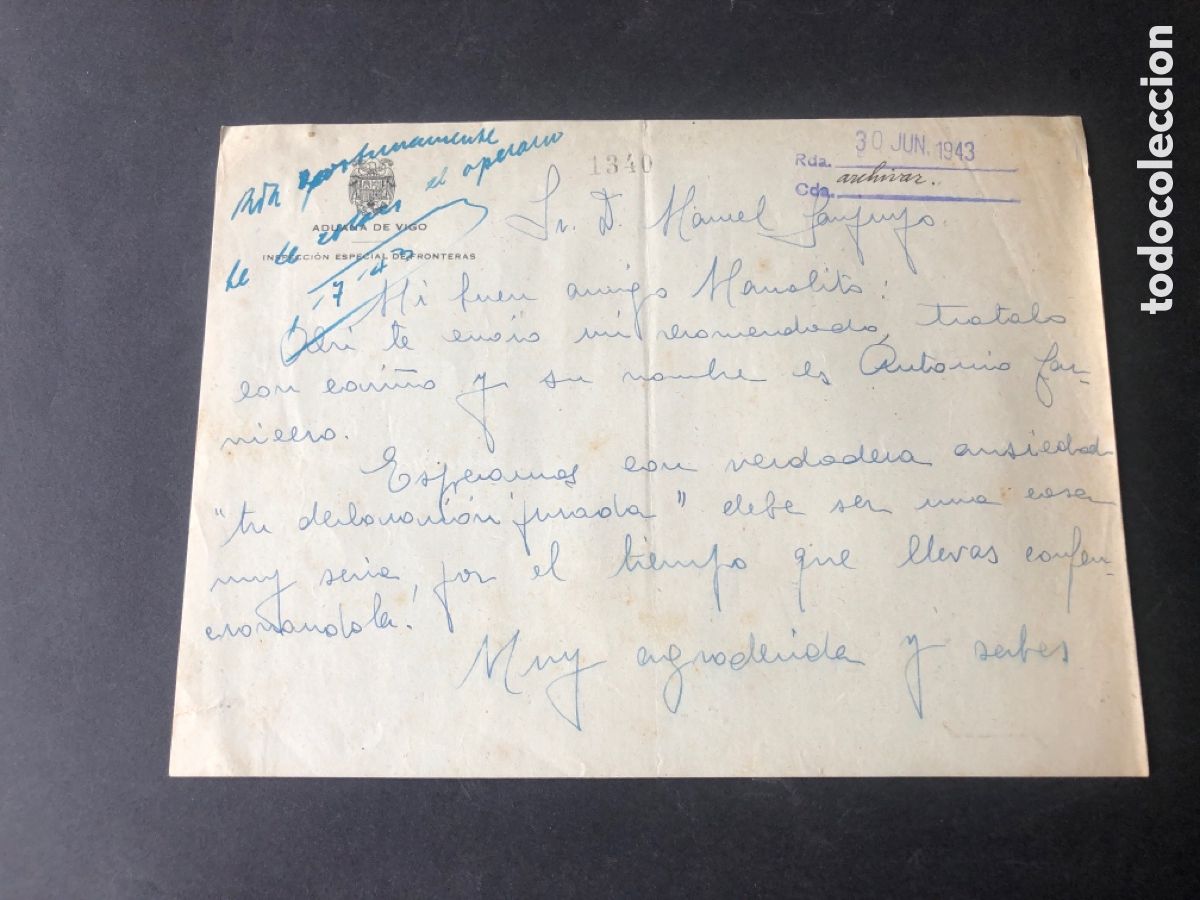 todocoleccion
oportunamente
el operario
1340
30 JUN. 1943
Rda.
Cda. archivar.
ADUANA DE VIGO
INSPECCIÓN ESPECIAL DE FRONTERAS
Sr. D. Manuel
Mi buen amigo Manolito:
Ahí te envío mi recomendado, tratalo
con cariño y su nombre es Antonio
Esperamos con verdadera ansiedad
"tu declaración jurada" debe ser una cosa
muy seria, por el tiempo que llevas confec-
cionandola!
Muy agradecida y sabes